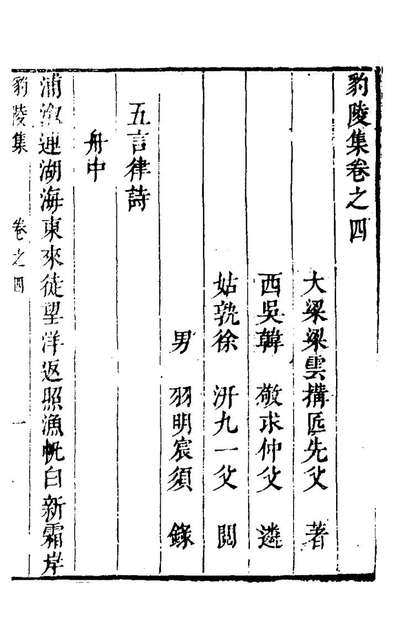 豹陵集卷之四
大梁梁雲搆匠先父 著
西吳韓 敬求仲父 選
姑孰徐 汧九一父 閱
男 羽明宸須 錄
五言律詩
舟中
浦漵連湖海東來徒望洋返照漁帆白新霜岸
豹陵集 卷之四 一